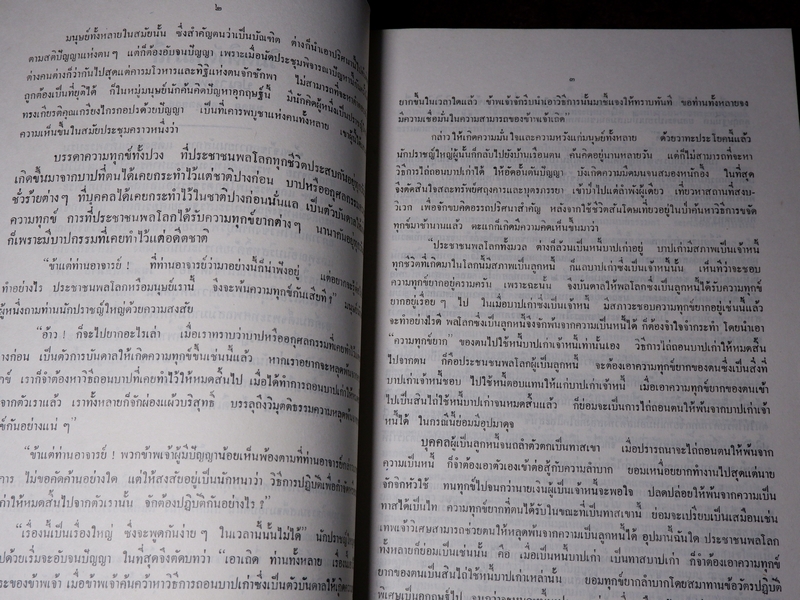 ๒
มนุษย์ทั้งหลายในสมัยนั้น ซึ่งสำคัญตนว่าเป็นบัณฑิต ต่างก็นำเอาปริศนา
ตามสติปัญญาแห่งตน ๆ แต่ก็ต้องอับจนปัญญา เพราะเมื่อนัดประชุมพิจารณาปัญหา
ต่างคนต่างก็ว่ากันไปสุดแต่คารมโวหารและทิฐิแห่งตนจักชักพา ไม่สามารถที่จะ
ถูกต้องเป็นที่ยุติได้ ก็ในหมู่มนุษย์นักค้นคิดปัญหาอุกฤษฎ์นี้ มีนักคิดผู้หนึ่งเป็น
ทรงเกียรติคุณเกรียงไกรกอปรด้วยปัญญา เป็นที่เคารพบูชาแห่งคนทั้งหลาย เขา
ความเห็นขึ้นในสมัยประชุมคราวหนึ่งว่า
บรรดาความทุกข์ทั้งปวง ที่ประชาชนพลโลกทุกชีวิตประสบกันอยู่
เกิดขึ้นมาจากบาปที่ตนได้เคยกระทำไว้แต่ชาติปางก่อน บาปหรืออกุศลกรรม
ชั่วร้ายต่าง ๆ ที่บุคคลได้เคยกระทำไว้ในชาติปางก่อนนั่นแล เป็นตัวบันดาลให้
ความทุกข์ การที่ประชาชนพลโลกได้รับความทุกข์ยากต่าง ๆ นานากันอยู่
ก็เพราะมีบาปกรรมที่เคยทำไว้แต่อดีตชาติ
“ข้าแต่ท่านอาจารย์ ! ที่ท่านอาจารย์ว่ามาอย่างนี้ก็น่าฟังอยู่ แต่อยากจะ
ทำอย่างไร ประชาชนพลโลกหรือมนุษย์เรานี้ จึงจะพ้นความทุกข์กันเสียที ?”
ผู้หนึ่งถามท่านนักปราชญ์ใหญ่ด้วยความสงสัย
“อ้าว ! ก็จะไปยากอะไรเล่า เมื่อเราทราบว่าบาปหรืออกุศลกรรมที่เคยทำ
างก่อน เป็นตัวการบันดาลให้เกิดความทุกข์ขึ้นเช่นนี้แล้ว หากเราอยากจะหลุดพ้น
าข์ เราก็จำต้องหาวิธีถอนบาปที่เคยทำไว้ให้หมดสิ้นไป เมื่อได้ทำการถอนบาป
จากตัวเราแล้ว เราทั้งหลายก็จักผ่องแผ้วบริสุทธิ์ บรรลุถึงวิมุตติธรรมความหลุดพ้น
ข์กันอย่างแน่ ๆ”
“ข้าแต่ท่านอาจารย์ ! พวกข้าพเจ้าผู้มีปัญญาน้อยเห็นพ้องตามที่ท่านอาจารย์
การ ไม่ขอคัดค้านอย่างใด แต่ให้สงสัยอยู่เป็นนักหนาว่า วิธีการปฏิบัติเพื่อ
เก่าให้หมดสิ้นไปจากตัวเรานั้น จักต้องปฏิบัติกันอย่างไร ?”
“เรื่องนี้เป็นเรื่องใหญ่ ซึ่งจะพูดกันง่าย ๆ ในเวลานี้นั้นไม่ได้” นักปราชญ์
ไปด้วยเริ่มจะอับจนปัญญา ในที่สุดจึงตัดบทว่า “เอาเถิด ท่านทั้งหลาย เรื่อง
ระของข้าพเจ้า เมื่อข้าพเจ้าค้นคว้าหาวิธีการถอนบาปเก่าซึ่งเป็นตัวบันดาลให้เกิด
๓
ยากขึ้นในเวลาใดแล้ว ข้าพเจ้าจักรีบนำเอาวิธีการนั้นมาชี้แจงให้ทราบทันที ขอท่านทั้งหลายจง
มีความเชื่อมั่นในความสามารถของข้าพเจ้าเถิด”
กล่าวให้เกิดความมั่นใจและความหวังแก่มนุษย์ทั้งหลาย ด้วยวาทะประโยคนี้แล้ว
นักปราชญ์ใหญ่ผู้นั้นก็กลับไปยังบ้านเรือนตน ค้นคิดอยู่นานหลายวัน แต่ก็ไม่สามารถที่จะหา
วิธีการไถ่ถอนบาปเก่าได้ ให้อัดอั้นตันปัญญา บังเกิดความมึดมนจนสมองหนักอึ้ง ในที่สุด
จึงตัดสินใจสละทรัพย์ศฤงคารและบุตรภรรยา เข้าป่าไปแต่ลำพังผู้เดียว เที่ยวหาสถานที่สงบ-
วิเวก เพื่อจักขบคิดอรรถปริศนาสำคัญ หลังจากใช้ชีวิตสันโดษเที่ยวอยู่ในป่าค้นหาวิธีการขจัด
ทุกข์มาช้านานแล้ว ตะแกก็เกิดมีความคิดเห็นขึ้นมาว่า
“ประชาชนพลโลกทั้งมวล ต่างก็ล้วนเป็นหนี้บาปเก่าอยู่ บาปเก่ามีสภาพเป็นเจ้าหนี้
ทุกชีวิตที่เกิดมาในโลกนี้มีสภาพเป็นลูกหนี้ ก็แลบาปเก่าซึ่งเป็นเจ้าหนี้นั้น เห็นทีว่าจะชอบ
ความทุกข์ยากอยู่ครามครัน เพราะฉะนั้น จึงบันดาลให้พลโลกซึ่งเป็นลูกหนี้ได้รับความทุกข์
ยากอยู่เรื่อย ๆ ไป ในเมื่อบาปเก่าซึ่งเป็นเจ้าหนี้ มีสภาวะชอบความทุกข์ยากอยู่เช่นนี้แล้ว
จะทำอย่างไรดี พลโลกซึ่งเป็นลูกหนี้จึงจักพ้นจากความเป็นหนี้ได้ ก็ต้องจำใจจำกระทำ โดยนำเอา
“ความทุกข์ยาก” ของตนไปใช้หนี้บาปเก่าเจ้าหนี้เท่านั้นเอง วิธีการไถ่ถอนบาปเก่าให้หมดสิ้น
ไปจากตน ก็คือประชาชนพลโลกผู้เป็นลูกหนี้ จะต้องเอาความทุกข์ยากของตนซึ่งเป็นสิ่งที่
บาปเก่าเจ้าหนี้ชอบ ไปใช้หนี้ตอบแทนให้แก่บาปเก่าเจ้าหนี้ เมื่อเอาความทุกข์ยากของตนเข้า
ไปเป็นสินไถ่ใช้หนี้บาปเก่าจนหมดสิ้นแล้ว ก็ย่อมจะเป็นการไถ่ถอนตนให้พ้นจากบาปเก่าเจ้า
หนี้ได้ ในกรณีนี้ย่อมมีอุปมาดุจ
บุคคลผู้เป็นลูกหนี้จนถลำตัวตกเป็นทาสเขา เมื่อปรารถนาจะไถ่ถอนตนให้พ้นจาก
ความเป็นหนี้ ก็จำต้องเอาตัวเองเข้าต่อสู้กับความลำบาก ยอมเหนื่อยยากทำงานไปสุดแต่นาย
จักจิกหัวใช้ ทนทุกข์ไปจนกว่านายเงินผู้เป็นเจ้าหนี้จะพอใจ ปลดปล่อยให้พ้นจากความเป็น
ทาสได้เป็นไท ความทุกข์ยากที่ตนได้รับในขณะที่เป็นทาสเขานี้ ย่อมจะเปรียบเป็นเสมือนเช่น
เทพเจ้าวิเศษสามารถช่วยตนให้หลุดพ้นจากความเป็นลูกหนี้ได้ อุปมานี้ฉันใด ประชาชนพลโลก
ทั้งหลายก็ย่อมเป็นเช่นนั้น คือ เมื่อเป็นหนี้บาปเก่า เป็นทาสบาปเก่า ก็จำต้องเอาความทุกข์
ยากของตนเป็นสินไถ่ใช้หนี้บาปเก่าเหล่านั้น ยอมทุกข์ยากลำบากโดยสมาทานข้อวัตรปฏิบัติ
พิเศษเป็นอุกฤษฎ์ไป จนกว่าจะ